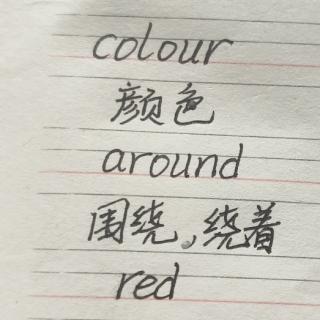 colour
颜色
around
围绕,绕着
red